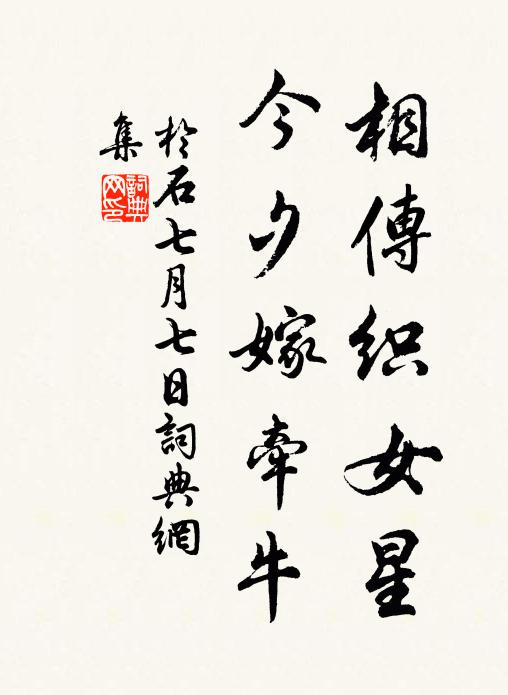 相傳织女星
今夕嫁牽牛
於石七月七日詞典網
集
詞典
网印